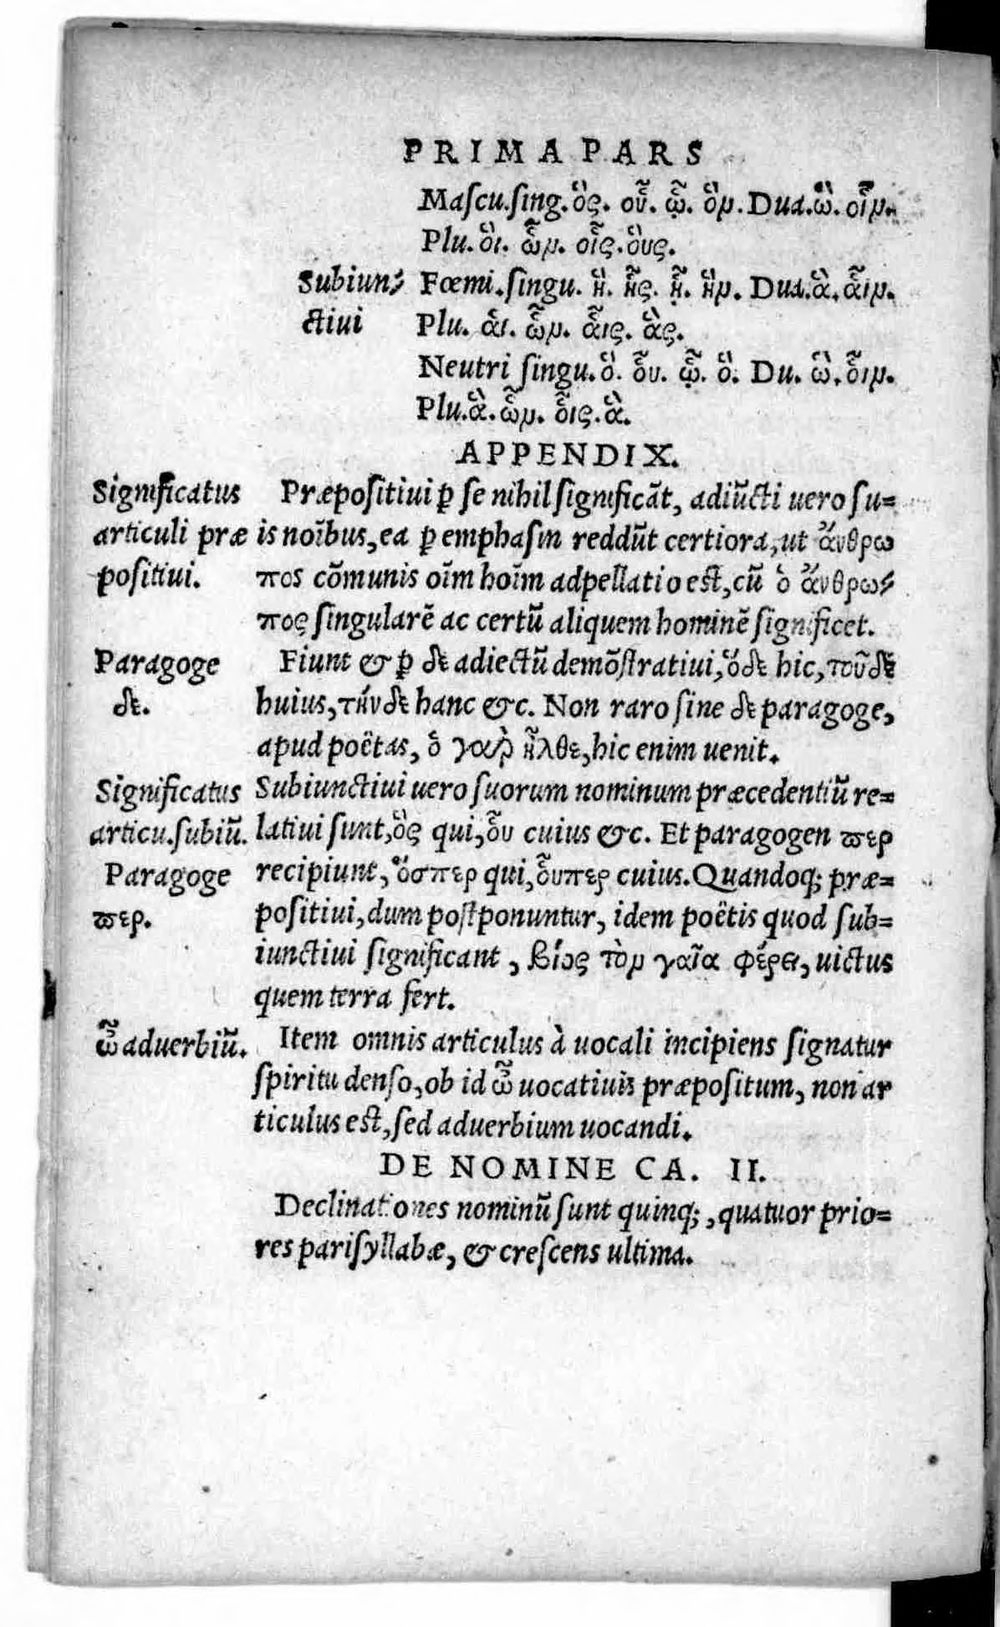 PRIMA PARS
Mascu.sing.ὃς. οὗ. ᾧ. ὃν. Dua.ὣ. οἷν.
Plu. ὃι. ὧν. οἷς.ὃυς.
Subiun⸗ Fœmi.singu. ἣ. ἧς. ᾗ. ἣν. Dua.ἃ. ἇιν.
ctiui Plu. ἁι. ὧν. ἇις. ἃς.
Neutri singu.ὃ. ὗυ. ᾧ. ὃ. Du. ὣ. ὗιν.
Plu.ἃ. ὧν. ὗις. ἃ.
APPENDIX.
Significatus Præpositiui ꝑ se nihil significãt, adiũcti uero su=
articuli præ is noĩbus, ea ꝑ emphasin reddũt certiora, ut ἄνθρω
positiui. πος cõmunis oĩm hoĩm adpellatio est, cũ ὁ ἄνθρω⸗
πος singularẽ ac certũ aliquem hominẽ significet.
Paragoge Fiunt & ꝑ δε adiectũ demõstratiui, ὅδε hic, τοῦδε
δε. huius, τήνδε hanc &c. Non raro sine δε paragoge,
apud poëtas, ὁ γαρ̀ ἦλθε, hic enim uenit.
Significatus Subiunctiui uero suorum nominum præcedentiũ re=
articu.subiũ. latiui sunt, ὃς qui, ὗυ cuius &c. Et paragogen ϖερ
Paragoge recipiunt, ὅσπερ qui, ὗυπερ cuius. Quandoq; præ=
ϖερ. positiui, dum postponuntur, idem poëtis quod sub=
iunctiui significant, βίος τὸν γαῖα φέρει, uictus
quem terra fert.
ὦ aduerbiũ. Item omnis articulus à uocali incipiens signatur
spiritu denso, ob id ὦ uocatiuis præpositum, non ar
ticulus est, sed aduerbium uocandi.
DE NOMINE CA. II.
Declinationes nominũ sunt quinq;, quatuor prio=
res parisyllabæ, & crescens ultima.